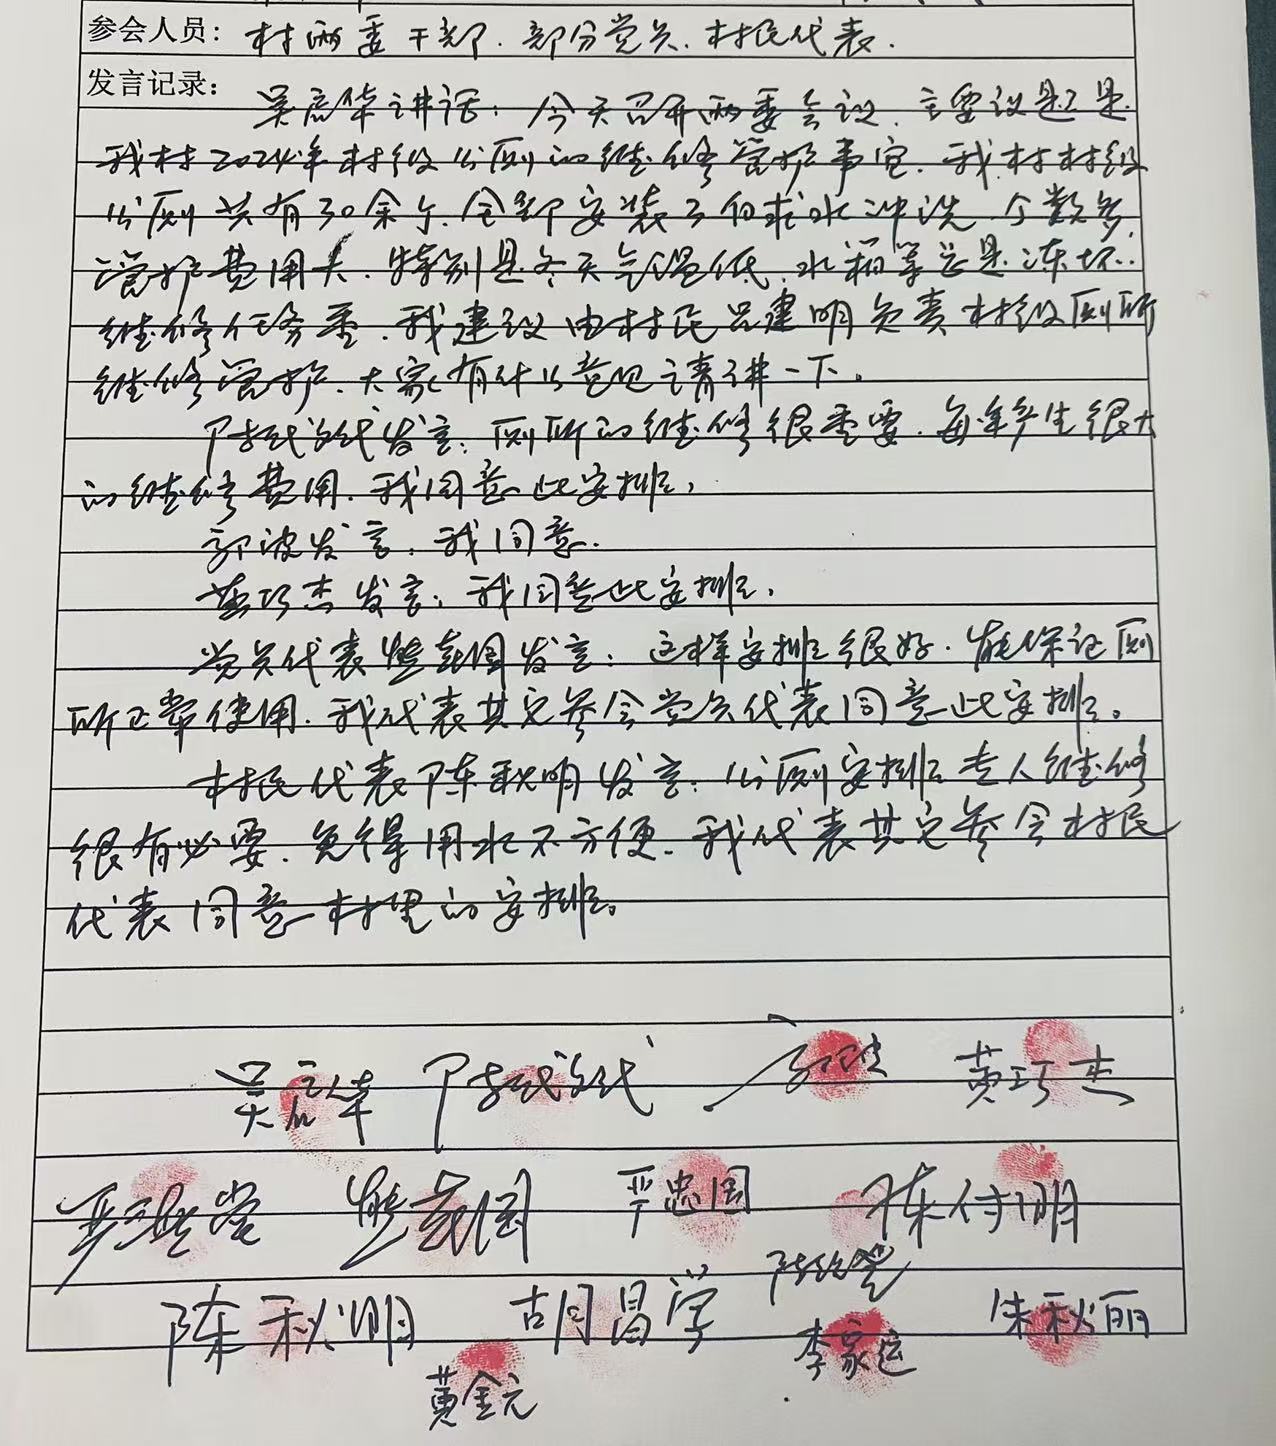 参会人员：村两委干部、部分党员、村民代表。
发言记录：
吴启华讲话：今天召开两委会议，主要议题是
我村2024年村级公厕的维修管护事宜，我村村级
公厕共有30余个，全部安装了自来水冲洗，个数多，
管护费用大，特别是冬天气温低，水箱等总是冻坏，
维修任务重，我建议由村民吕建明负责村级厕所
维修管护，大家有什么意见请讲一下。
发言：厕所的维修很重要，每年产生很大
的维修费用，我同意此安排，
郭波发言：我同意。
黄巧杰发言：我同意此安排，
党员代表熊龙国发言：这样安排很好，能保证厕
所正常使用，我代表其它参会党员代表同意此安排。
村民代表陈秋明发言：公厕安排专人维修
很有必要，免得用水不方便，我代表其它参会村民
代表同意村里的安排。
吴启华 黄巧杰
熊龙国 严忠国 陈付明
陈秋明 胡昌学 李家运 朱秋丽
黄金元